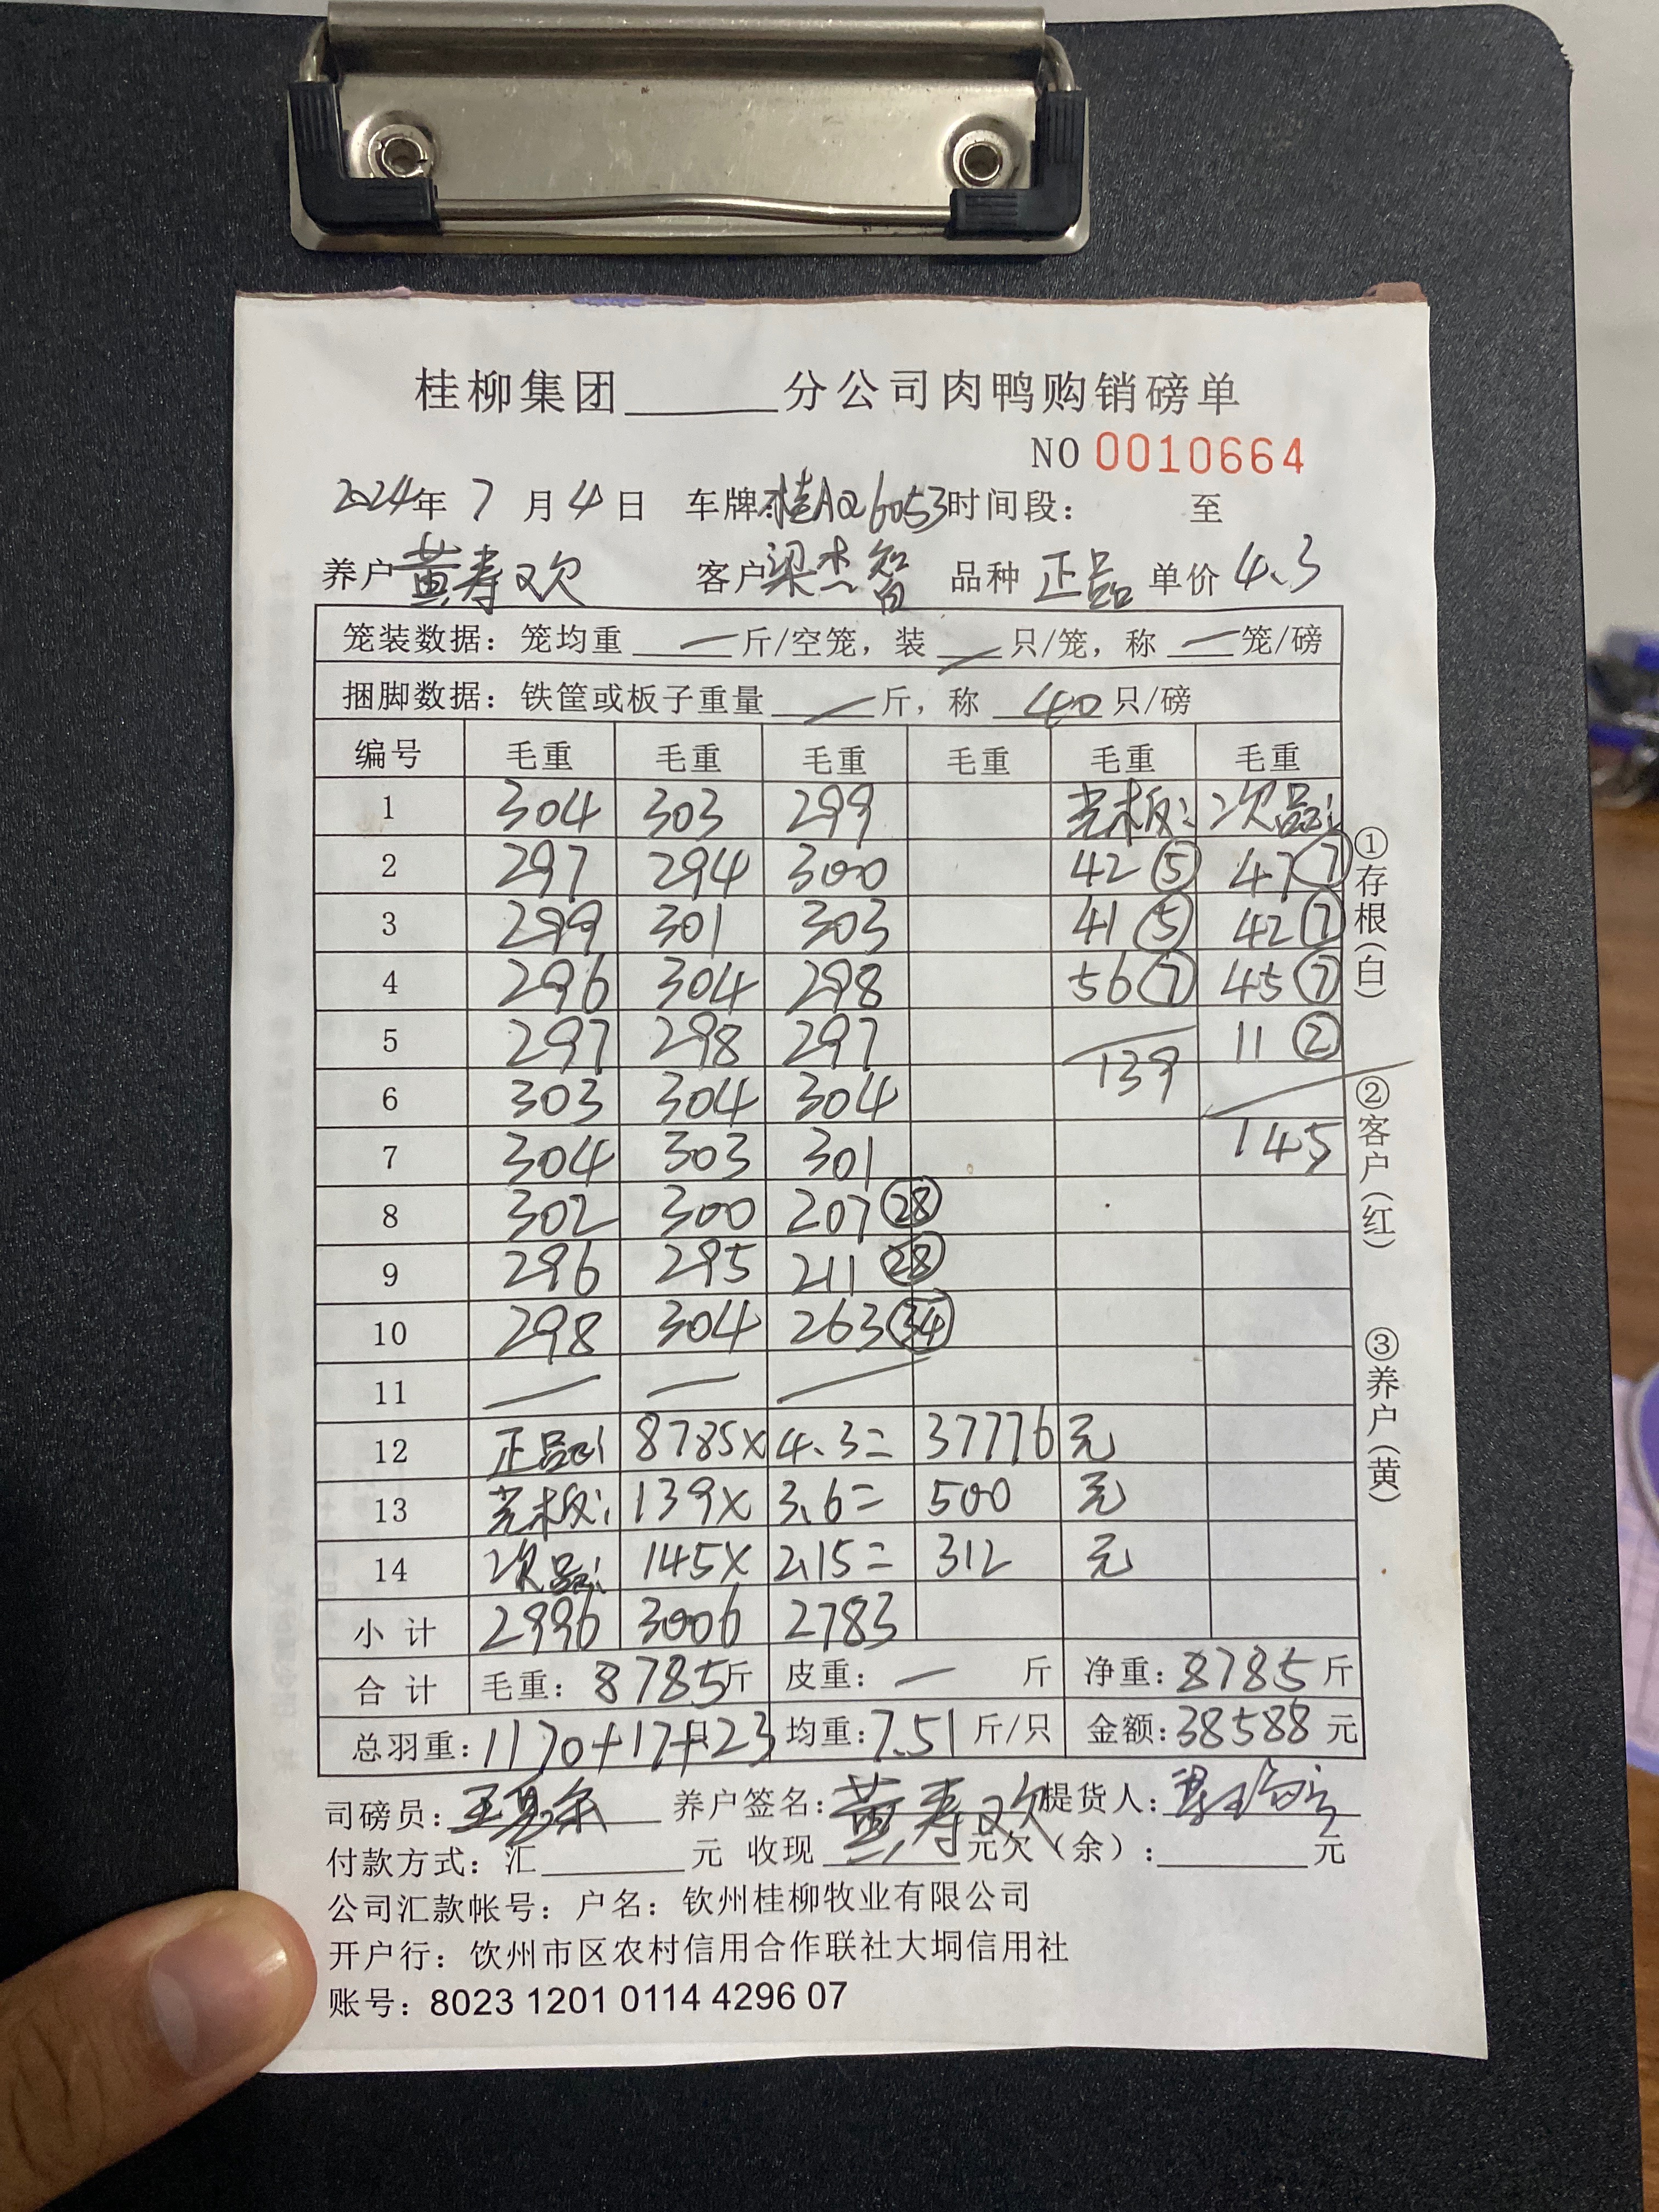 桂柳集团______分公司肉鸭购销磅单
NO 0010664
2024年 7 月 4 日 车牌:桂AQ6053 时间段： 至
养户 黄寿欢 客户 梁杰智 品种 正品 单价 4.3
笼装数据：笼均重 — 斤/空笼，装 — 只/笼，称 — 笼/磅
捆脚数据：铁筐或板子重量 — 斤，称 40 只/磅
编号 毛重 毛重 毛重 毛重 毛重 毛重
1 304 303 299 光板: 次品:
2 297 294 300 42 ⑤ 47 ⑦
3 299 301 303 41 ⑤ 42 ⑦
4 296 304 298 56 ⑦ 45 ⑦
5 297 298 297 139 11 ②
6 303 304 304
7 304 303 301 145
8 302 300 207 ㉘
9 296 295 211 ㉘
10 298 304 263 ㉞
11 — — —
12 正品: 8785× 4.3= 37776 元
13 光板: 139× 3.6= 500 元
14 次品: 145× 2.15= 312 元
小 计 2996 3006 2783
合 计 毛重：8785斤 皮重：— 斤 净重：8785斤
总羽重：1170+17+23只 均重：7.51 斤/只 金额：38588 元
司磅员： 养户签名：黄寿欢 提货人：
付款方式：汇______元 收现______元欠（余）：______元
公司汇款帐号：户名：钦州桂柳牧业有限公司
开户行：饮州市区农村信用合作联社大垌信用社
账号：8023 1201 0114 4296 07
①存根（白）
②客户（红）
③养户（黄）